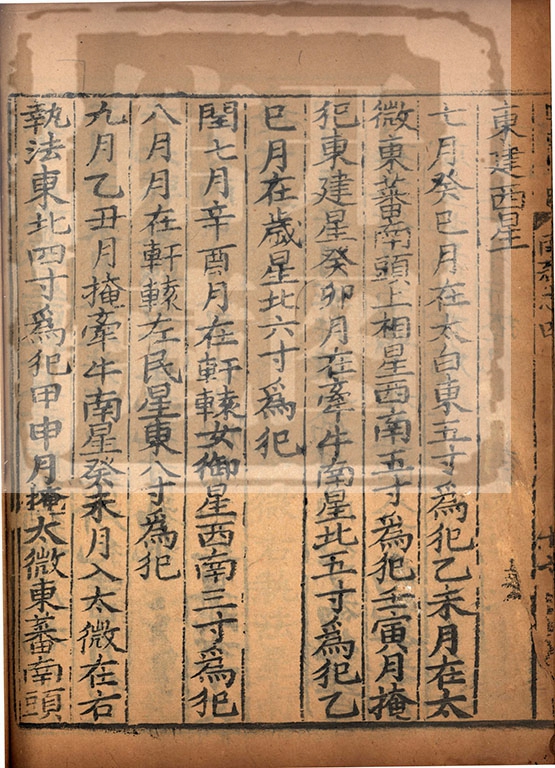 東建西星
七月癸巳月在太白東五寸爲犯乙未月在太
微東蕃南頭上相星西南五寸爲犯壬寅月掩
犯東建星癸卯月在牽牛南星北五寸爲犯乙
巳月在歲星北六寸爲犯
閏七月辛酉月在軒轅女御星西南三寸爲犯
八月月在軒轅左民星東八寸爲犯
九月乙丑月掩牽牛南星癸未月入太微在右
執法東北四寸爲犯甲申月掩太微東蕃南頭